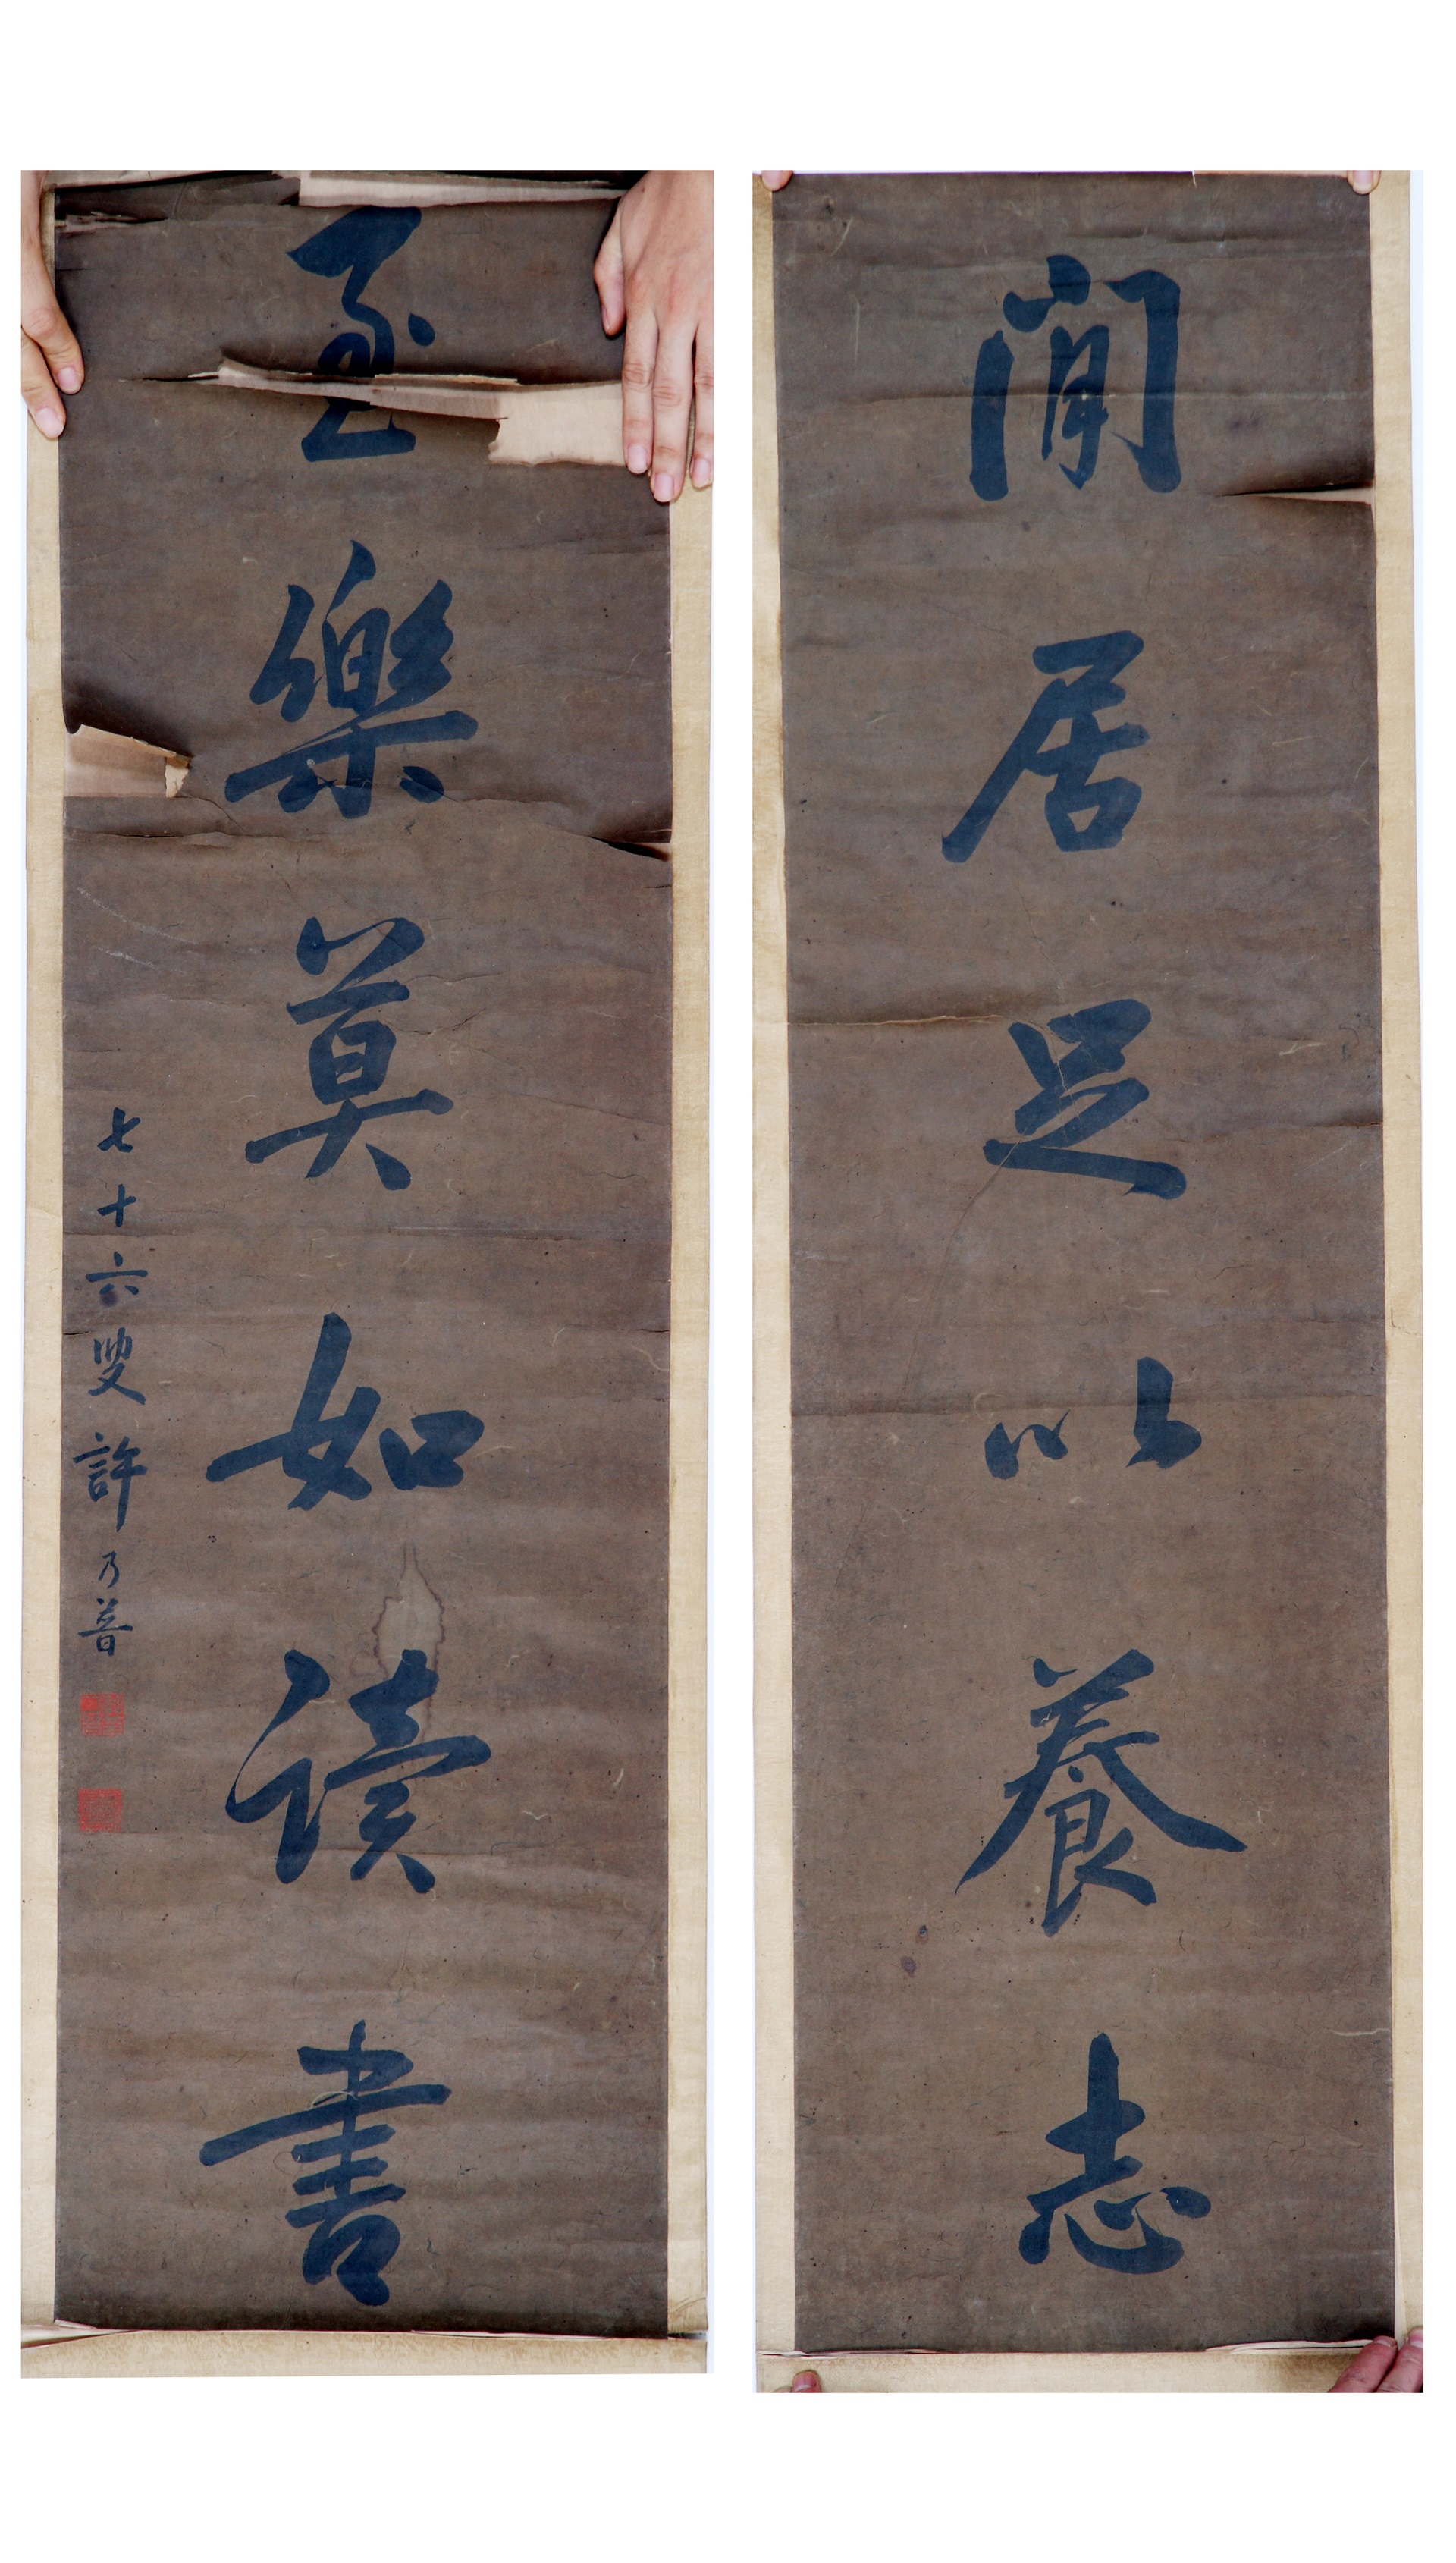 閒居足以養志
至樂莫如讀書
七十六叟許乃普